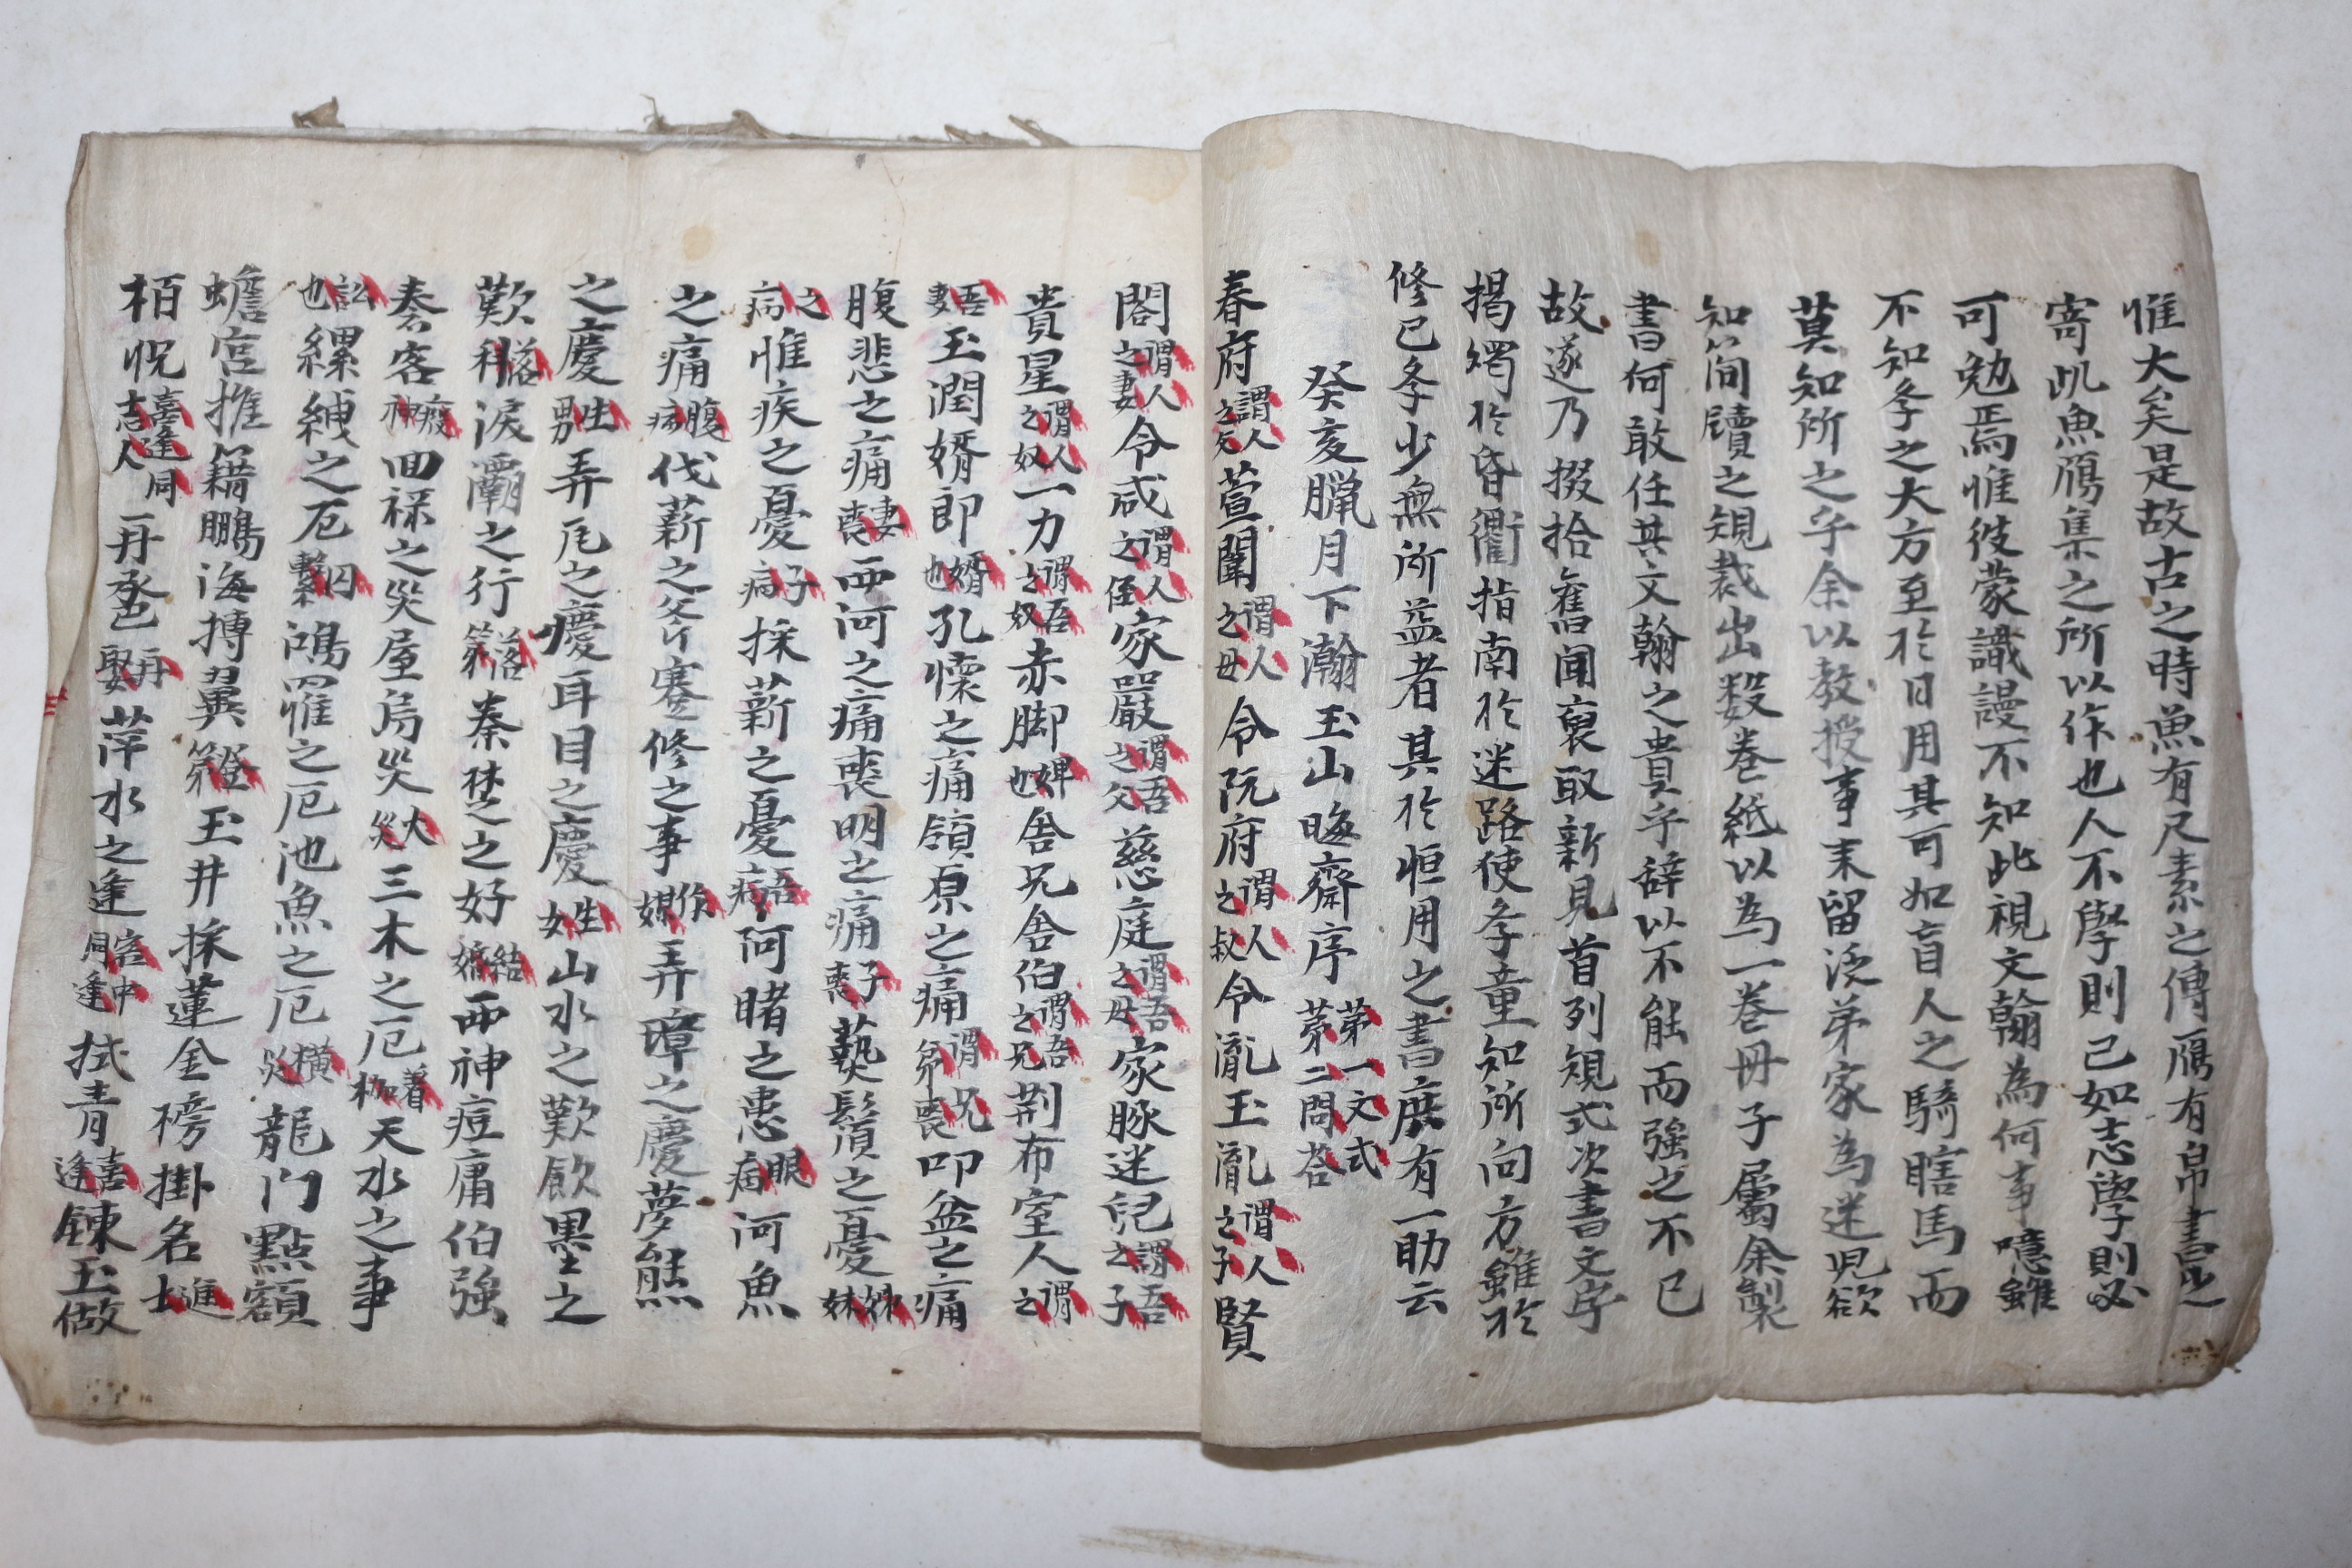 惟大矣是故古之時魚有尺素之傳鴈有帛書之
寄此魚鴈集之所以作也人不學則已如志學則必
可勉焉惟彼蒙識謾不知此視文翰為何事噫雖
不知孝之大方至於日用其可如盲人之騎瞎馬而
莫知所之乎余以教授事来留泛弟家為迷児欲
知簡牘之規裁出数巻紙以為一巻冊子屬余製
書何敢任其文翰之貴乎辞以不能而强之不已
故遂乃掇拾舊聞裒取新見首列規式次書文字
揭燭於昏衢指南於迷路使孝童知所向方雖於
修已孝少無所益者其於恒用之書庶有一助云
癸亥臘月下瀚玉山晦齋序 第一文式 第二問答
春府謂人之父萱闈謂人之母令阮府謂人之叔令胤玉胤謂人之子賢
閤謂人之妻令咸謂人之侄家嚴謂吾之父慈庭謂吾之母家豚迷兒謂吾之子
貴星謂人之奴一力謂吾之奴赤脚婢也舎兄舎伯謂吾之兄荆布室人謂之
吾妻玉潤婿郎婿也孔懐之痛領原之痛謂兄弟喪叩盆之痛
腹悲之痛妻喪西河之痛喪明之痛子喪爇鬚之憂姊妹
之病惟疾之憂子病採薪之憂吾病阿睹之患眼病河魚
之痛腹病伐薪之斧蹇修之事作媒弄璋之慶夢熊
之慶生男弄瓦之慶耳目之慶生女山水之歎飲墨之
歎落科淚灞之行落第秦楚之好結婚西神痘庸伯强
秦客疫神回祿之災屋烏災火災三木之厄着枷天水之事
訟也縲縛之厄囚繫鴻罹之厄池魚之厄横災龍门點額
蟾宮推籍鵬海摶翼登第玉井採蓮金榜掛名進士
栢恱喜逢同志人再丞巹再娶萍水之逢客中同逢拭青喜逢鍊玉做